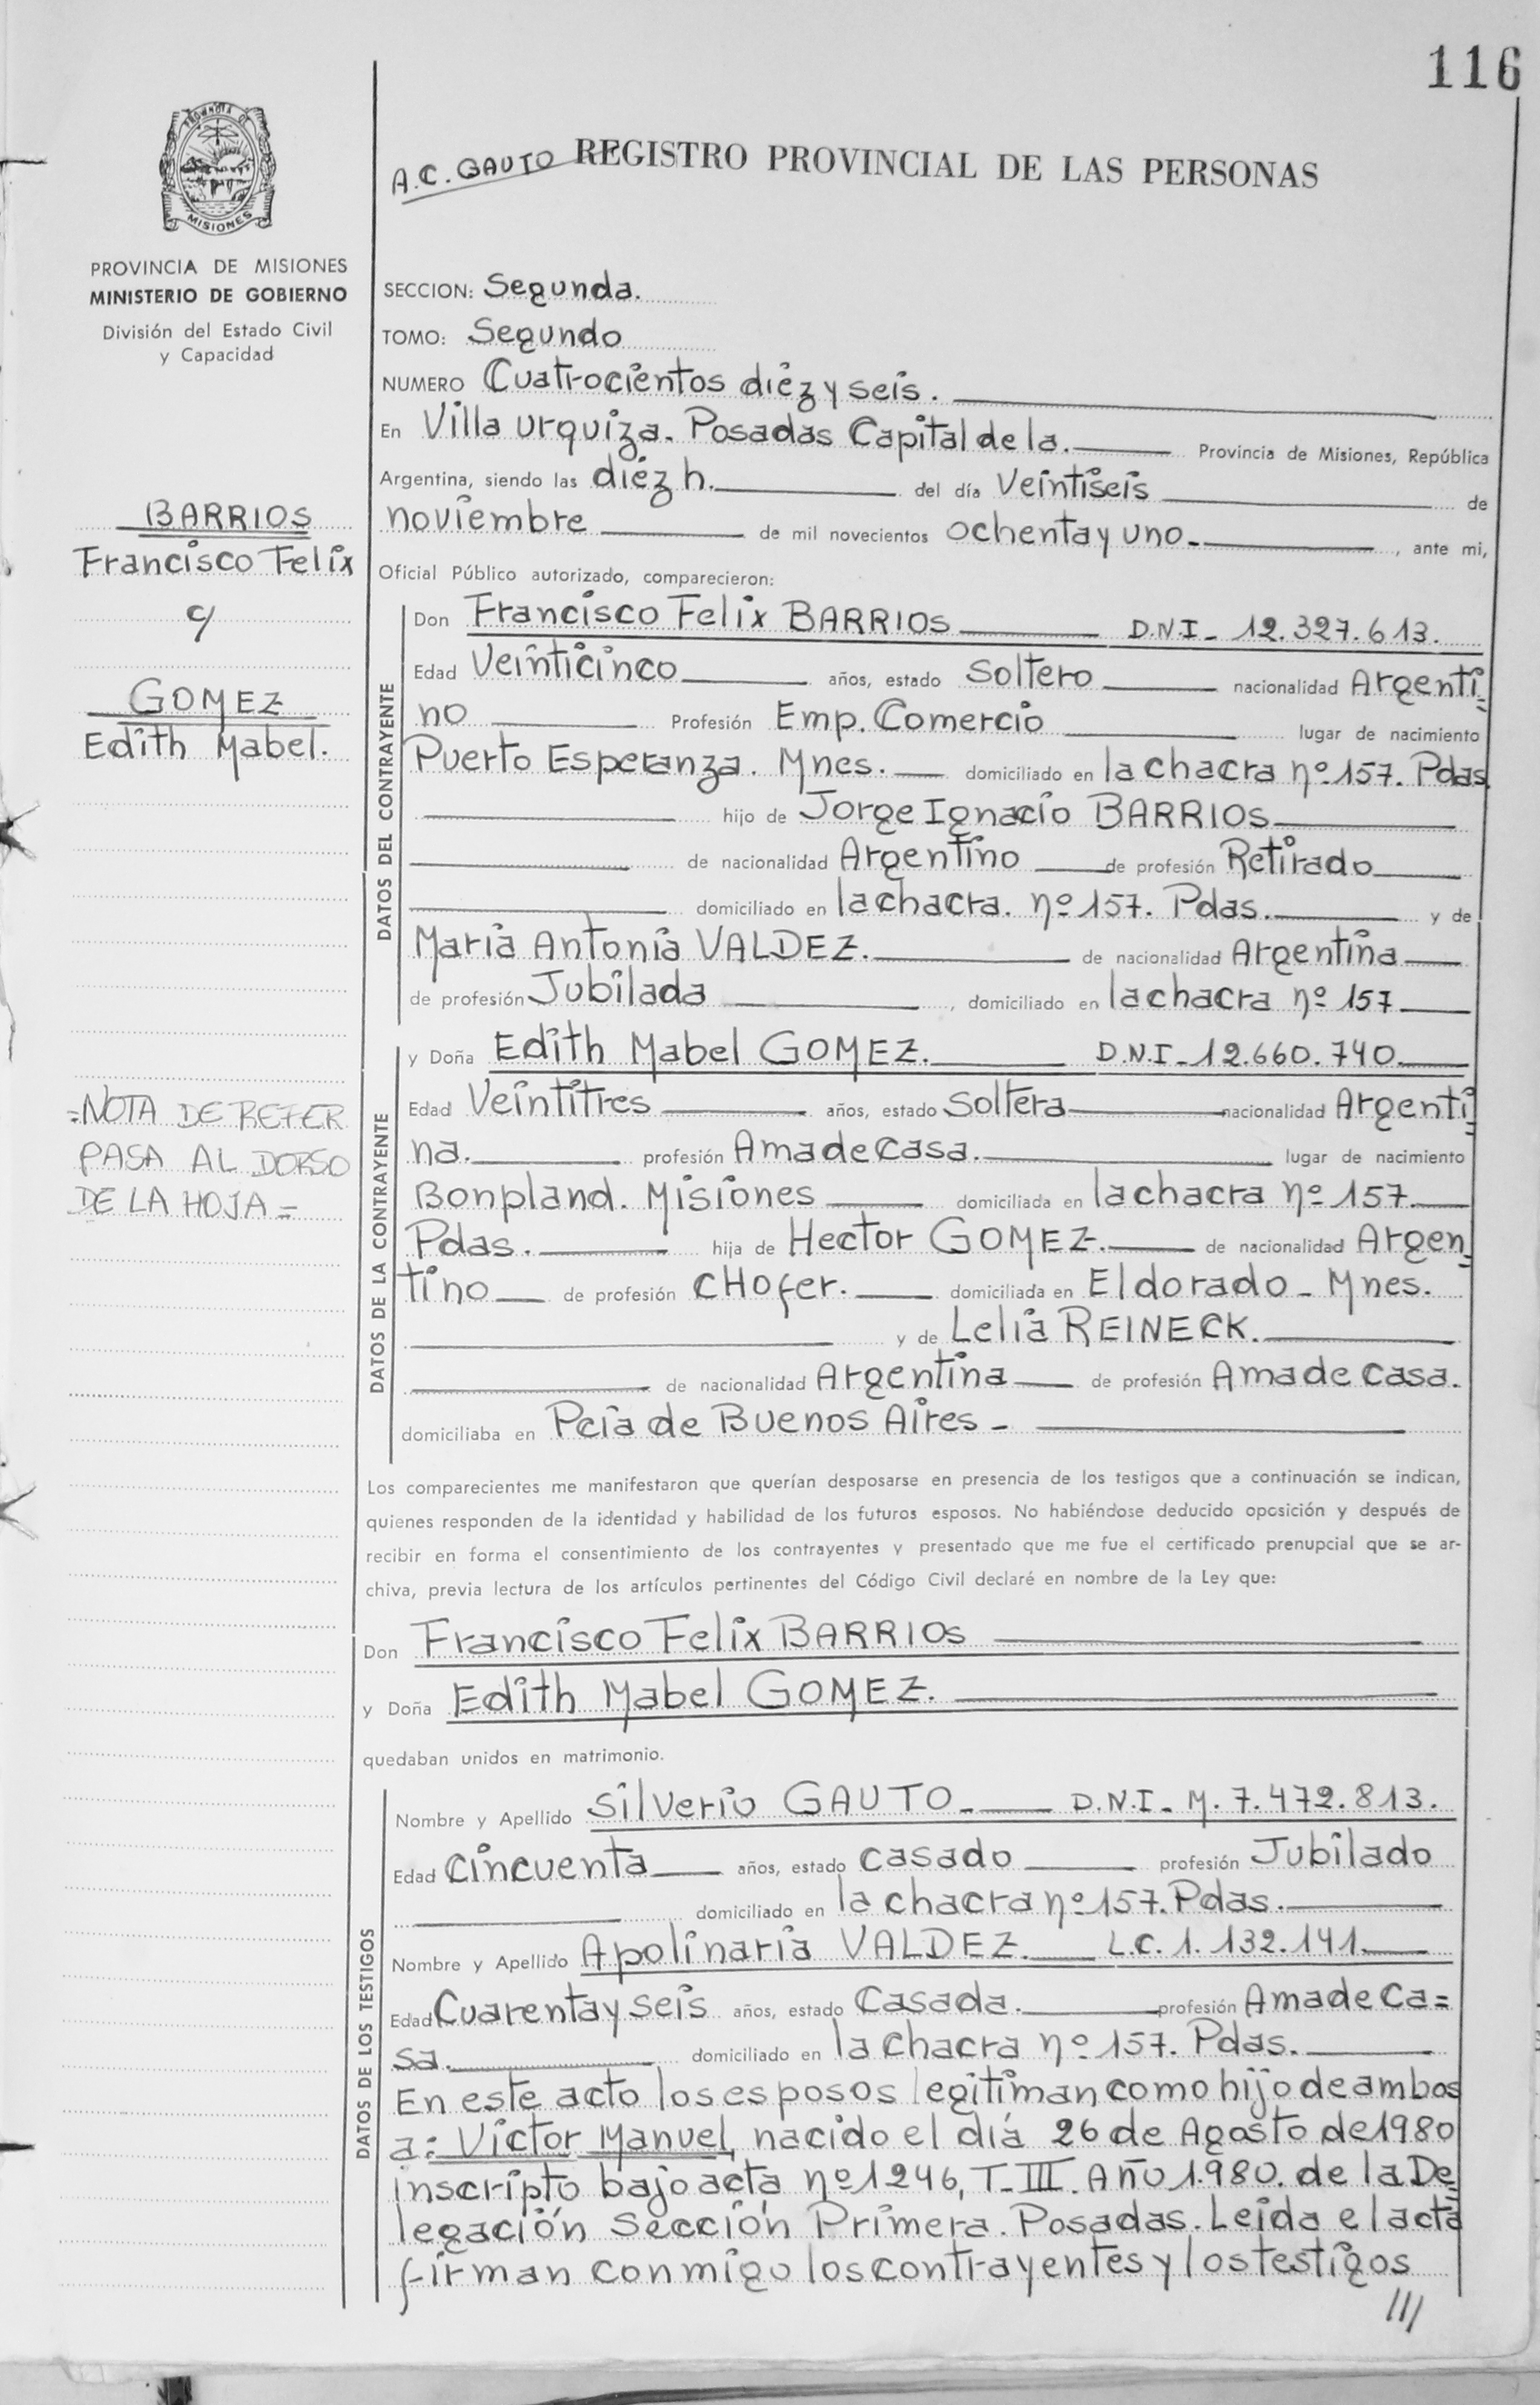 116
PROVINCIA DE
MISIONES
A.C. GAUTO REGISTRO PROVINCIAL DE LAS PERSONAS
PROVINCIA DE MISIONES
MINISTERIO DE GOBIERNO
División del Estado Civil
y Capacidad
SECCION: Segunda.
TOMO: Segundo
NUMERO Cuatrocientos diéz y seis.
En Villa Urquiza. Posadas Capital de la. Provincia de Misiones, República
Argentina, siendo las diéz h. del día Veintiseis de
noviembre de mil novecientos ochenta y uno. , ante mi,
Oficial Público autorizado, comparecieron:
BARRIOS
Francisco Felix
c/
GOMEZ
Edith Mabel.
=NOTA DE REFER
PASA AL DORSO
DE LA HOJA=
DATOS DEL CONTRAYENTE
Don Francisco Felix BARRIOS D.N.I- 12.327.613.
Edad Veinticinco años, estado Soltero nacionalidad Argenti=
no Profesión Emp. Comercio lugar de nacimiento
Puerto Esperanza. Mnes. domiciliado en la chacra nº 157. Pdas.
hijo de Jorge Ignacio BARRIOS
de nacionalidad Argentino de profesión Retirado
domiciliado en la chacra. nº 157. Pdas. y de
Maria Antonia VALDEZ. de nacionalidad Argentina
de profesión Jubilada , domiciliado en la chacra nº 157
DATOS DE LA CONTRAYENTE
y Doña Edith Mabel GOMEZ. D.N.I-12.660.740.
Edad Veintitres años, estado Soltera nacionalidad Argenti=
na. profesión Ama de casa. lugar de nacimiento
Bonpland. Misiones domiciliada en la chacra nº 157.
Pdas. hija de Hector GOMEZ. de nacionalidad Argen=
tino de profesión CHofer. domiciliada en Eldorado - Mnes.
y de Lelia REINECK.
de nacionalidad Argentina de profesión Ama de casa.
domiciliaba en Pcia de Buenos Aires -
Los comparecientes me manifestaron que querían desposarse en presencia de los testigos que a continuación se indican,
quienes responden de la identidad y habilidad de los futuros esposos. No habiéndose deducido oposición y después de
recibir en forma el consentimiento de los contrayentes y presentado que me fue el certificado prenupcial que se ar-
chiva, previa lectura de los artículos pertinentes del Código Civil declaré en nombre de la Ley que:
Don Francisco Felix BARRIOS
y Doña Edith Mabel GOMEZ.
quedaban unidos en matrimonio.
DATOS DE LOS TESTIGOS
Nombre y Apellido Silverio GAUTO. D.N.I- M. 7.472.813.
Edad cincuenta años, estado casado profesión Jubilado
domiciliado en la chacra nº 157. Pdas.
Nombre y Apellido Apolinaria VALDEZ. L.C. 1.132.141.
Edad Cuarenta y seis años, estado Casada. profesión Ama de Ca=
sa. domiciliado en la chacra nº 157. Pdas.
En este acto los esposos legitiman como hijo de ambos
a: Victor Manuel, nacido el diá 26 de Agosto de 1980
inscripto bajo acta nº 1246, T-III. Año 1.980. de la De=
legación Sección Primera. Posadas. Leida el acta
firman conmigo los contrayentes y los testigos
///